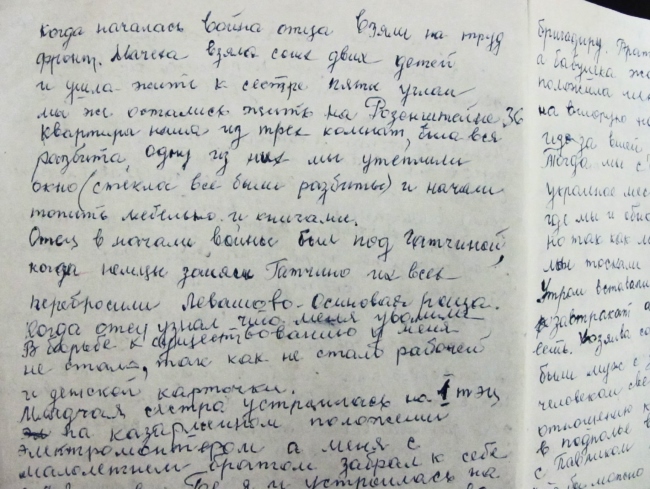 когда началась война отца взяли на труд
фронт. Мачеха взяла своих двух детей
и ушла жить к сестре пять углам
мы же остались жить на Розенштейна 36
квартира наша из трех комнат, была вся
разбита одну из них мы утеплили
окно (стекла все были разбиты) и начали
топить мебелью и книгами.
Отец в начали войны был под Гатчиной,
когда немцы заняли Гатчино их всех
перебросили Левашово-Осиновая роща.
Когда отец узнал что меня уволили
В борьбе к существованию у меня
не стало, так как не стало рабочей
и детской карточки.
Младчая сестра устроилась на 1 тэц
на казарменном положении
электромонтером а меня с
малолетним братом забрал к себе
Где я и устроилась на
бригадиру.
а бабушка
положила
на вторую
за
Тогда мы с
укромное
где мы и
но так как
мы таскали
Утром вставали
завтракать
есть.
были муж с
человеком
отношению к
в подполье в
с Павликом